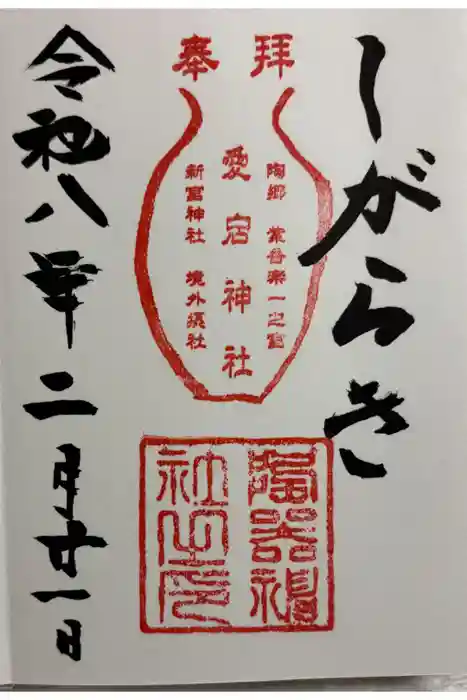 しがらき
奉拝
陶郷 紫香楽一之宮
愛宕神社
新宮神社 境外摂社
陶器神
社之印
令和八年二月廿一日